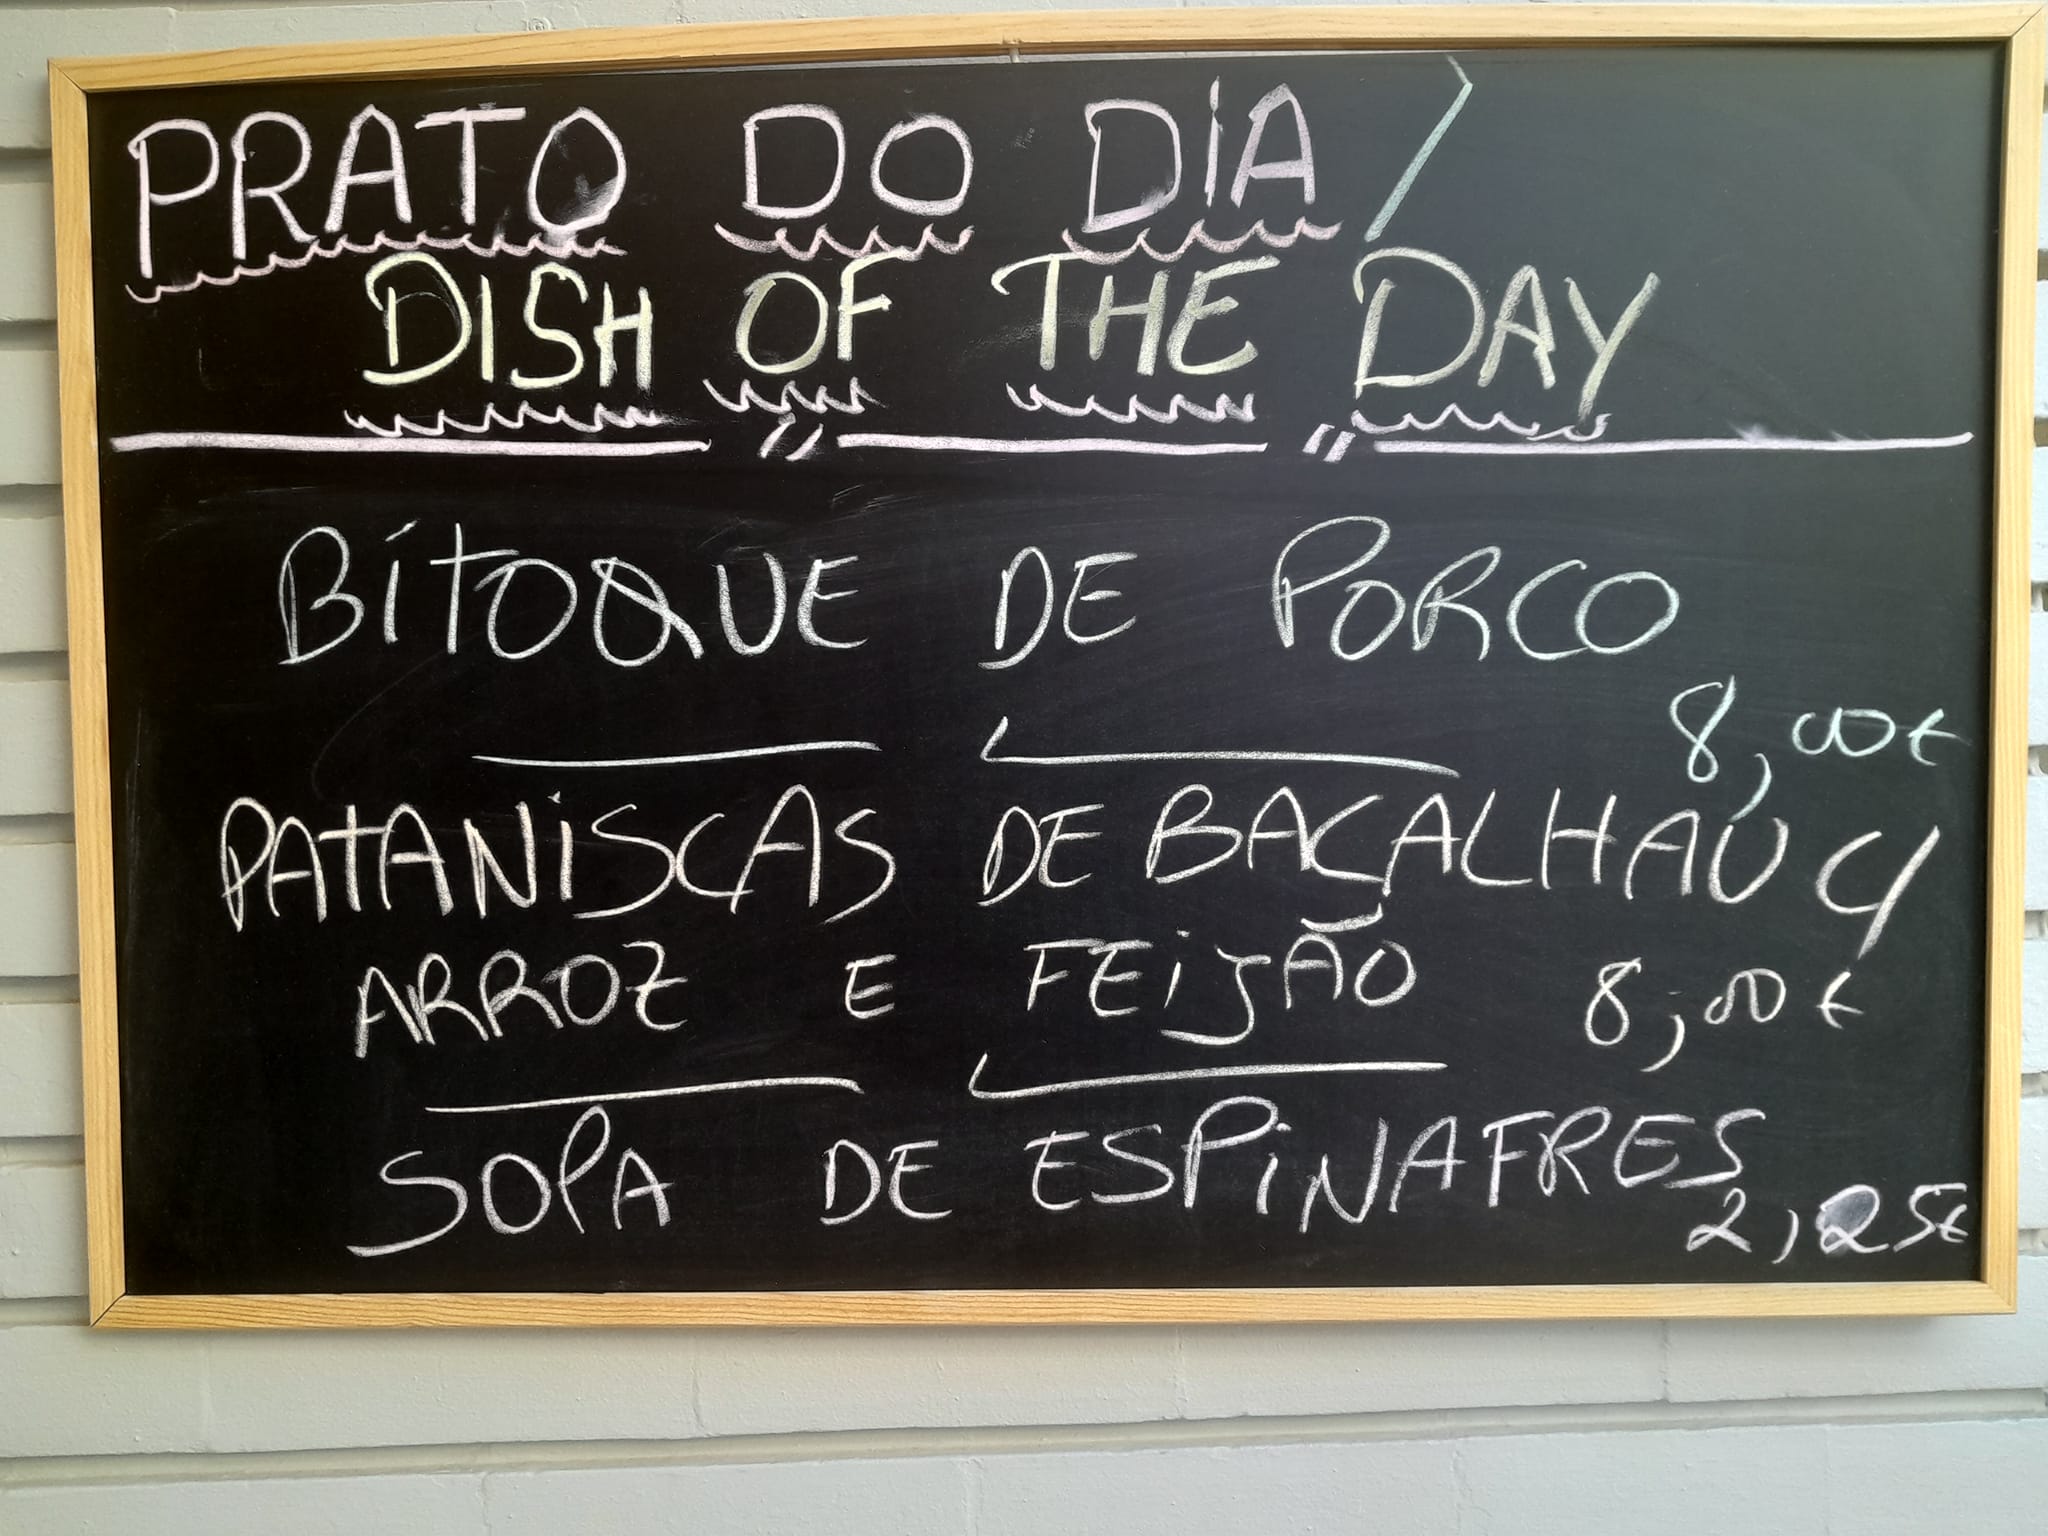 PRATO DO DIA /
DISH OF THE DAY
BITOQUE DE PORCO
8,00€
PATANISCAS DE BACALHAU C/
ARROZ E FEIJÃO 8,00€
SOPA DE ESPINAFRES
2,25€